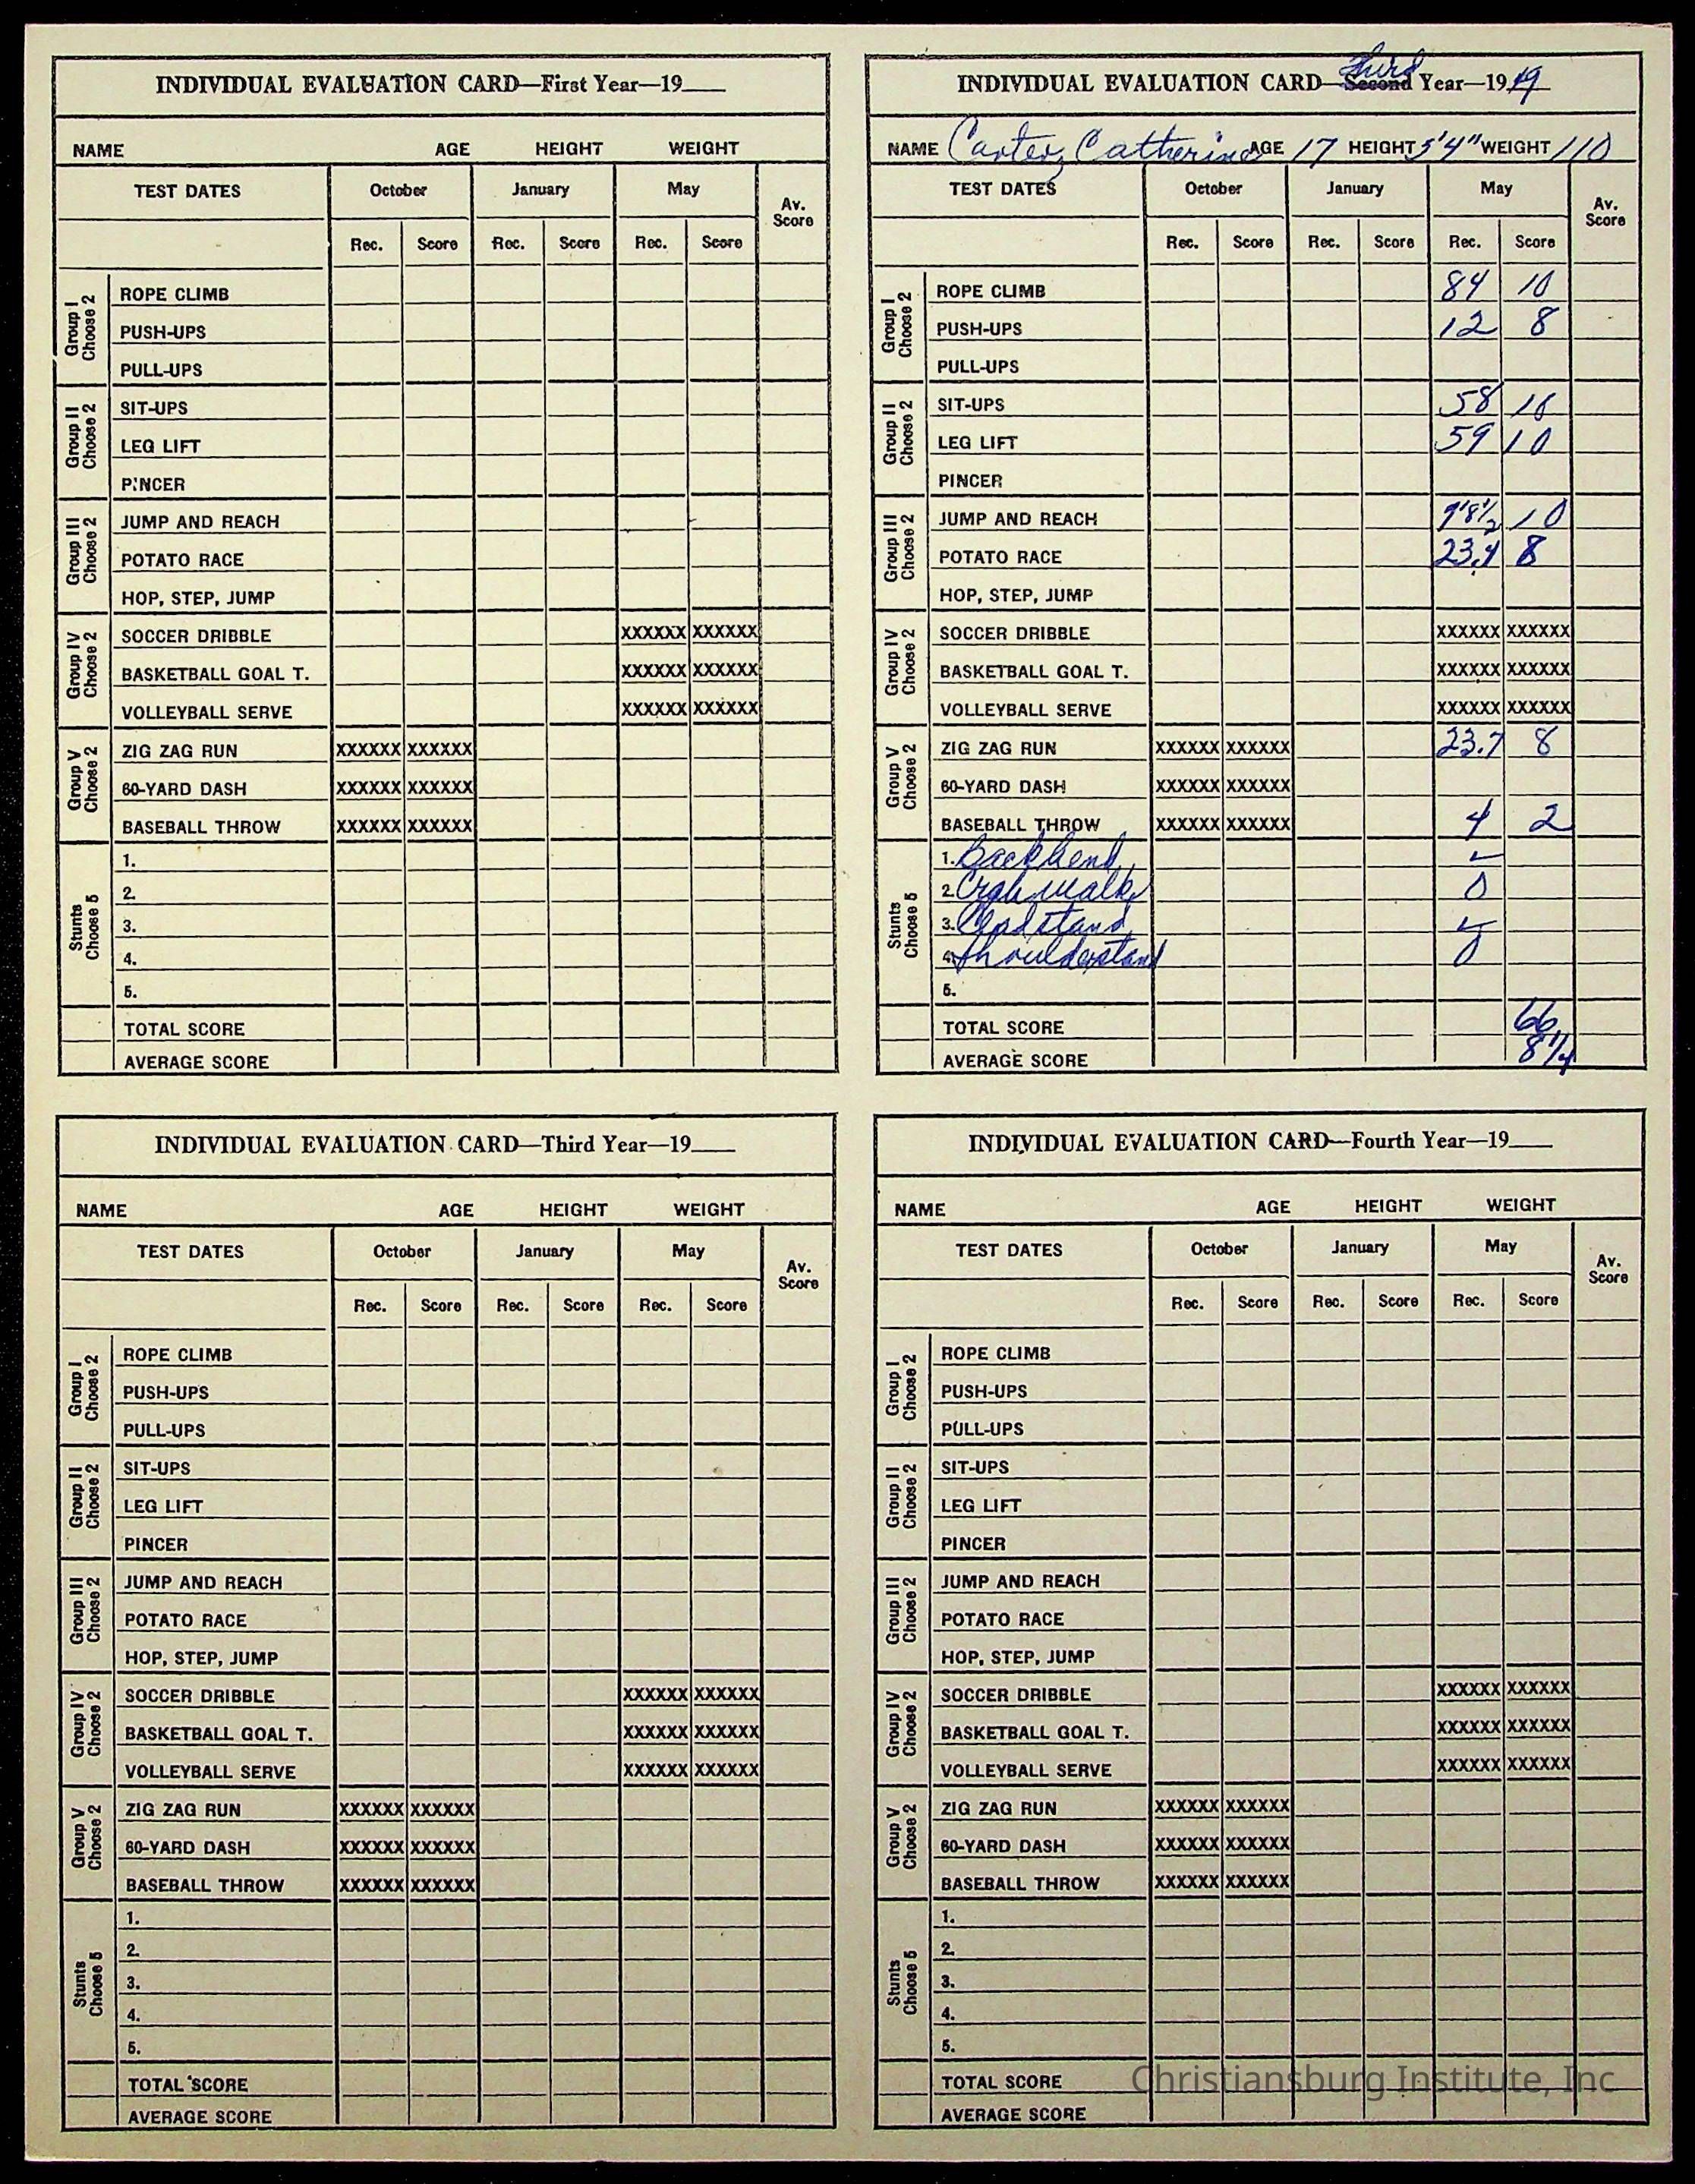 INDIVIDUAL EVALUATION CARD—First Year—19
NAME AGE HEIGHT WEIGHT
TEST DATES October January May Av. Score
Rec. Score Rec. Score Rec. Score
Group I Choose 2
ROPE CLIMB
PUSH-UPS
PULL-UPS
Group II Choose 2
SIT-UPS
LEG LIFT
PINCER
Group III Choose 2
JUMP AND REACH
POTATO RACE
HOP, STEP, JUMP
Group IV Choose 2
SOCCER DRIBBLE XXXXXX XXXXXX
BASKETBALL GOAL T. XXXXXX XXXXXX
VOLLEYBALL SERVE XXXXXX XXXXXX
Group V Choose 2
ZIG ZAG RUN XXXXXX XXXXXX
60-YARD DASH XXXXXX XXXXXX
BASEBALL THROW XXXXXX XXXXXX
Stunts Choose 5
1.
2.
3.
4.
5.
TOTAL SCORE
AVERAGE SCORE
Third
INDIVIDUAL EVALUATION CARD—Second Year—19
NAME Carter, Catherine AGE 17 HEIGHT 5'4" WEIGHT 110
TEST DATES October January May Av. Score
Rec. Score Rec. Score Rec. Score
Group I Choose 2
ROPE CLIMB 84 10
PUSH-UPS 12 8
PULL-UPS
Group II Choose 2
SIT-UPS 58 10
LEG LIFT 59 10
PINCER
Group III Choose 2
JUMP AND REACH 10
POTATO RACE 23.4 8
HOP, STEP, JUMP
Group IV Choose 2
SOCCER DRIBBLE XXXXXX XXXXXX
BASKETBALL GOAL T. XXXXXX XXXXXX
VOLLEYBALL SERVE XXXXXX XXXXXX
Group V Choose 2
ZIG ZAG RUN XXXXXX XXXXXX 23.7 8
60-YARD DASH XXXXXX XXXXXX
BASEBALL THROW XXXXXX XXXXXX 4 2
Stunts Choose 5
1. Backbend
2. Crab walk 0
3.
4. Shoulderstand 0
5.
TOTAL SCORE 66
AVERAGE SCORE 8 1/4
INDIVIDUAL EVALUATION CARD—Third Year—19
NAME AGE HEIGHT WEIGHT
TEST DATES October January May Av. Score
Rec. Score Rec. Score Rec. Score
Group I Choose 2
ROPE CLIMB
PUSH-UPS
PULL-UPS
Group II Choose 2
SIT-UPS
LEG LIFT
PINCER
Group III Choose 2
JUMP AND REACH
POTATO RACE
HOP, STEP, JUMP
Group IV Choose 2
SOCCER DRIBBLE XXXXXX XXXXXX
BASKETBALL GOAL T. XXXXXX XXXXXX
VOLLEYBALL SERVE XXXXXX XXXXXX
Group V Choose 2
ZIG ZAG RUN XXXXXX XXXXXX
60-YARD DASH XXXXXX XXXXXX
BASEBALL THROW XXXXXX XXXXXX
Stunts Choose 5
1.
2.
3.
4.
5.
TOTAL SCORE
AVERAGE SCORE
INDIVIDUAL EVALUATION CARD—Fourth Year—19
NAME AGE HEIGHT WEIGHT
TEST DATES October January May Av. Score
Rec. Score Rec. Score Rec. Score
Group I Choose 2
ROPE CLIMB
PUSH-UPS
PULL-UPS
Group II Choose 2
SIT-UPS
LEG LIFT
PINCER
Group III Choose 2
JUMP AND REACH
POTATO RACE
HOP, STEP, JUMP
Group IV Choose 2
SOCCER DRIBBLE XXXXXX XXXXXX
BASKETBALL GOAL T. XXXXXX XXXXXX
VOLLEYBALL SERVE XXXXXX XXXXXX
Group V Choose 2
ZIG ZAG RUN XXXXXX XXXXXX
60-YARD DASH XXXXXX XXXXXX
BASEBALL THROW XXXXXX XXXXXX
Stunts Choose 5
1.
2.
3.
4.
5.
TOTAL SCORE
AVERAGE SCORE
Christiansburg Institute, Inc